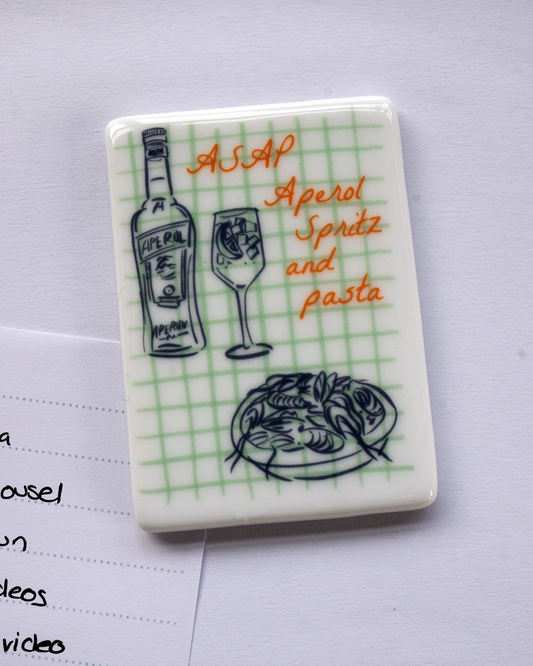 ASAP
Aperol
Spritz
and
pasta
APEROL
APERITIVO
ousel
un
deos
video